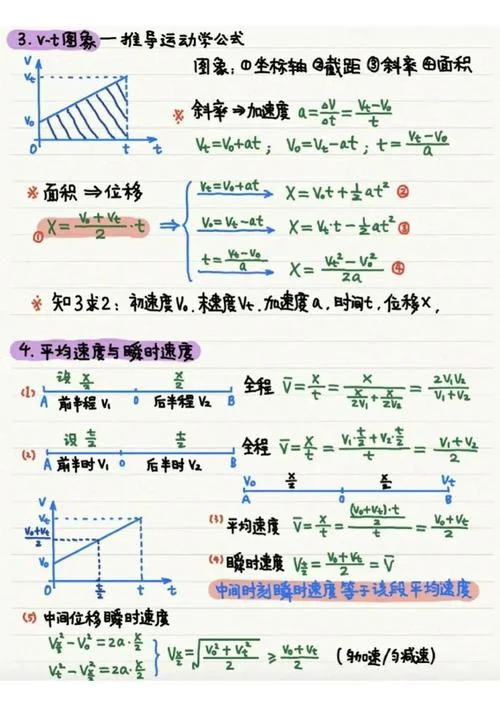 3. v-t图象—推导运动学公式
图象:①坐标轴 ②截距 ③斜率 ④面积
V
Vt
V₀
0
t
t
※ 斜率⇒加速度 a=ΔV/Δt=(Vt-V₀)/t
Vt=V₀+at; V₀=Vt-at; t=(Vt-V₀)/a
※ 面积⇒位移
① X=(V₀+Vt)/2·t ⇒
Vt=V₀+at X=V₀t+½at² ②
V₀=Vt-at X=Vt·t-½at² ③
t=(Vt-V₀)/a X=(Vt²-V₀²)/2a ④
※ 知3求2:初速度V₀.末速度Vt.加速度a,时间t,位移X,
4.平均速度与瞬时速度
(1) 设 x/2 x/2
A 前半程 V₁ 0 后半程 V₂ B
全程 V̄=X/t=X/(X/2V₁+X/2V₂)=2V₁V₂/(V₁+V₂)
(2) 设 t/2 t/2
A 前半时 V₁ 0 后半时 V₂ B
全程 V̄=X/t=(V₁·t/2+V₂·t/2)/t=(V₁+V₂)/2
V₀ x/2 x/2 Vt
A 0 B
V
Vt
(V₀+Vt)/2
V₀
0
t/2
t
t
(3) 平均速度 V̄=X/t=((V₀+Vt)·t/2)/t=(V₀+Vt)/2
(4) 瞬时速度 V t/2=(V₀+Vt)/2=V̄
中间时刻瞬时速度等于该段平均速度
(5) 中间位移瞬时速度
V x/2²-V₀²=2a·x/2
Vt²-V x/2²=2a·x/2
V x/2=√((V₀²+Vt²)/2) ≥ (V₀+Vt)/2 (匀加速/匀减速)